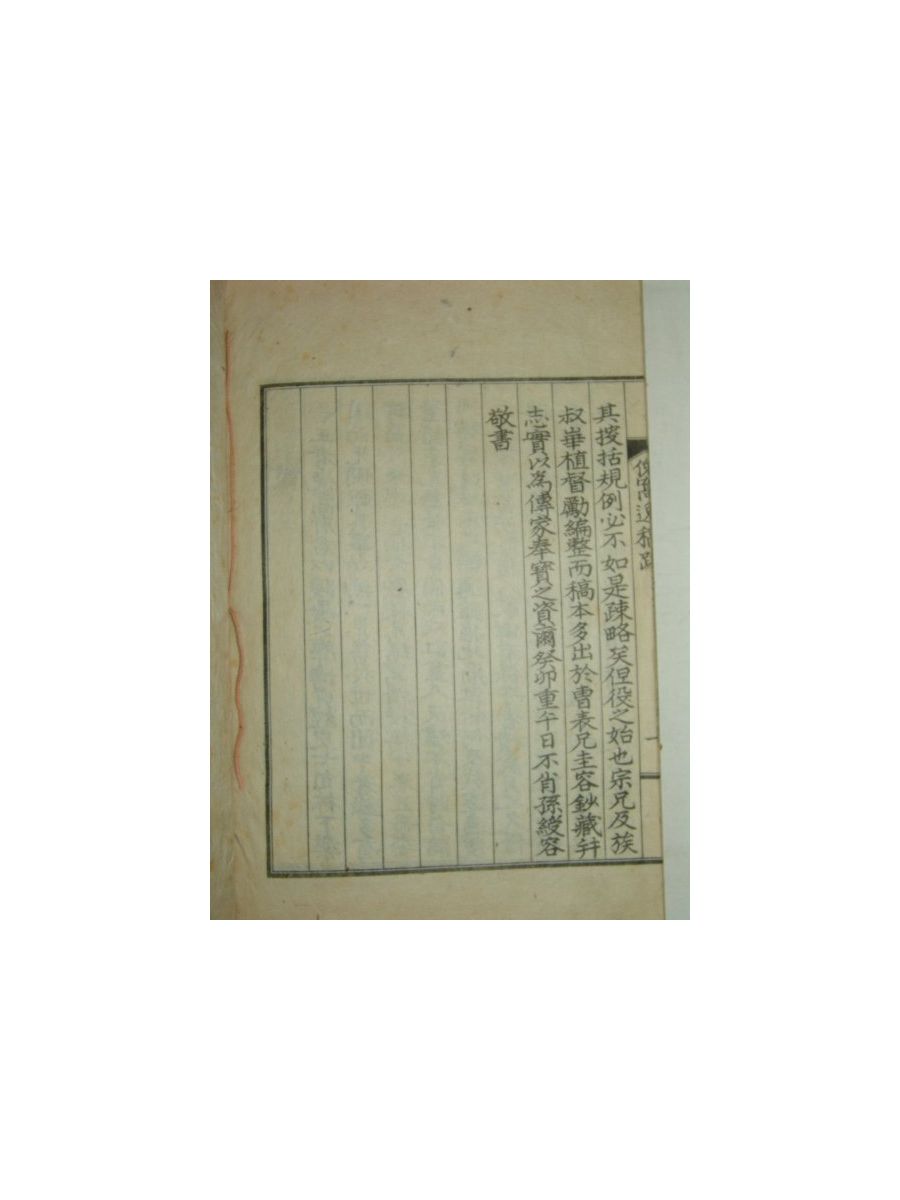 其按括規例必不如是疎略矣但役之始也宗兄及族
叔崋植督勵編整而稿本多出於曺表兄圭容鈔藏并
志實以為傳家奉寶之資爾癸卯重午日不肖孫綬容
敬書
窩逸稿跋
一